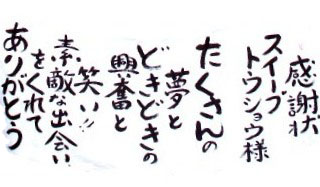 感謝状
スイープ
トウショウ様
たくさんの
夢と
どきどきの
興奮と
笑い!!
素敵な出会い
をくれて
ありがとう